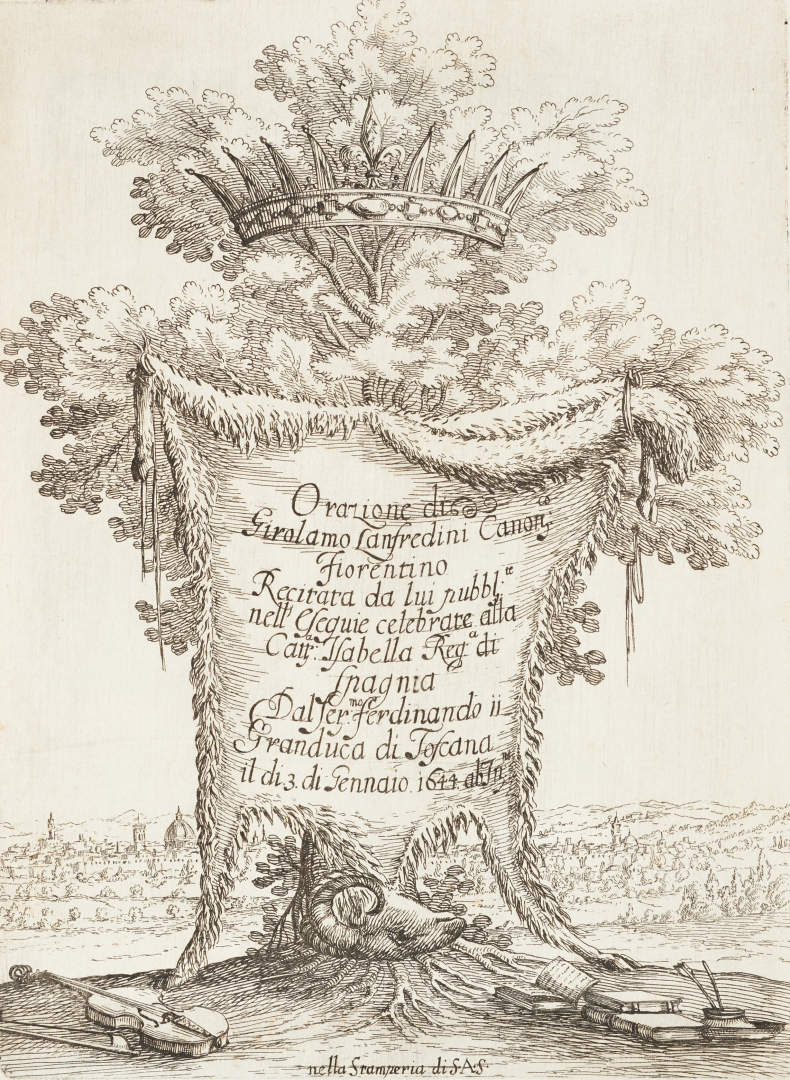 Orazione di
Girolamo Lanfredini Canon.co
Fiorentino
Recitata da lui pubbl.te
nell' Esequie celebrate alla
Catt.a Isabella Reg.a di
Spagnia
Dal Ser.mo Ferdinando ii
Granduca di Toscana
il di 3. di Gennaio. 1644. ab In.ne
nella Stamperia di S.A.S.